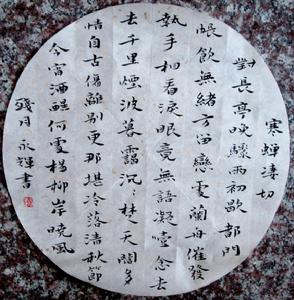 寒蟬淒切
對長亭晚驟雨初歇都門
帳飲無緒方留戀處蘭舟催發
執手相看淚眼竟無語凝噎念去
去千里煙波暮靄沉〻楚天闊多
情自古傷離別更那堪冷落清秋節
今宵酒醒何處楊柳岸曉風
殘月 永輝書